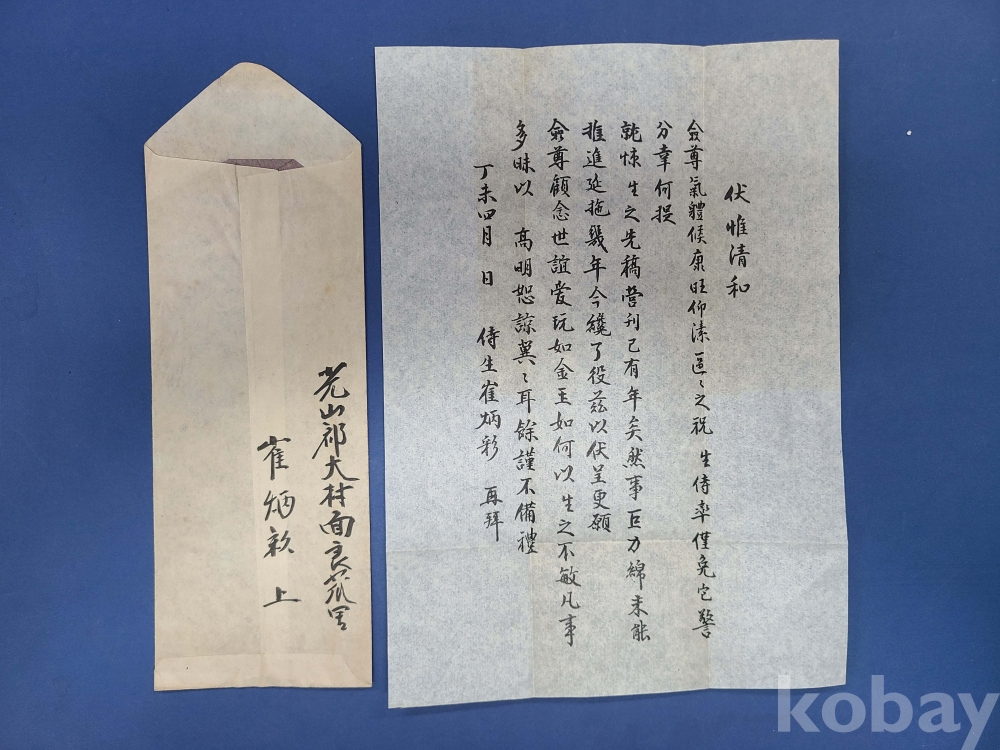 伏惟清和
僉尊氣體候康旺仰溸區〻之祝 生侍率僅免它警
分幸何提
就悚 生之先稿營刊已有年矣然事巨力綿未能
推進延拖幾年今纔了役茲以伏呈更願
僉尊顧念世誼愛玩如金玉如何以生之不敏凡事
多昧以 高明恕諒冀〻耳餘謹不備禮
丁未四月 日 侍生崔炳彩 再拜
光山郡大村面良苽里
崔炳 上
kobay